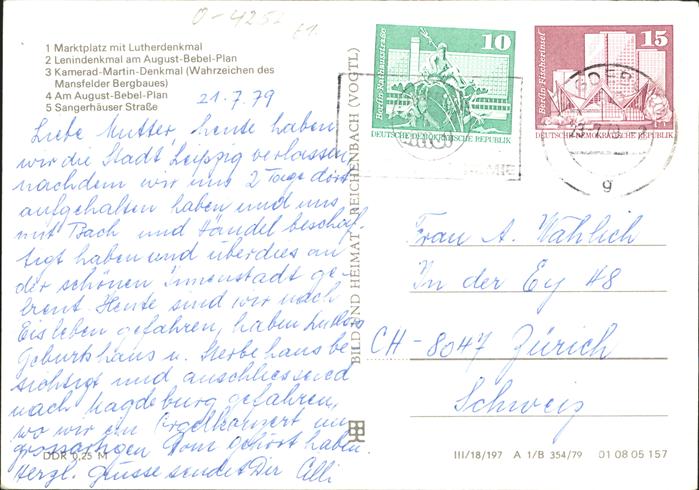 0-4252
1 Marktplatz mit Lutherdenkmal
2 Lenindenkmal am August-Bebel-Plan
3 Kamerad-Martin-Denkmal (Wahrzeichen des
Mansfelder Bergbaues)
4 Am August-Bebel-Plan
5 Sangerhäuser Straße
21.7.79
Liebe Mutter, heute haben
wir die Stadt Leipzig verlassen,
nachdem wir uns 2 Tage dort
aufgehalten haben und uns
mit Bach und Händel beschäf-
tigt haben und überdies an
der schönen Innenstadt ge-
freut. Heute sind wir nach
Eisleben gefahren, haben Luthers
Geburtshaus u. Sterbehaus be-
sichtigt und anschliessend
nach Magdeburg gefahren,
wo wir ein Orgelkonzert im
grossartigen Dom gehört haben.
Herzl. Grüsse sendet Dir Alli
DDR 0,25 M
BILD UND HEIMAT REICHENBACH (VOGTL)
10
Berlin-Rathausstraße
DEUTSCHE DEMOKRATISCHE REPUBLIK
15
Berlin Fischerinsel
DEUTSCHE DEMOKRATISCHE REPUBLIK
g
Frau A. Wählich
In der Ey 48
CH-8047 Zürich
Schweiz
III/18/197 A 1/B 354/79 01 08 05 157